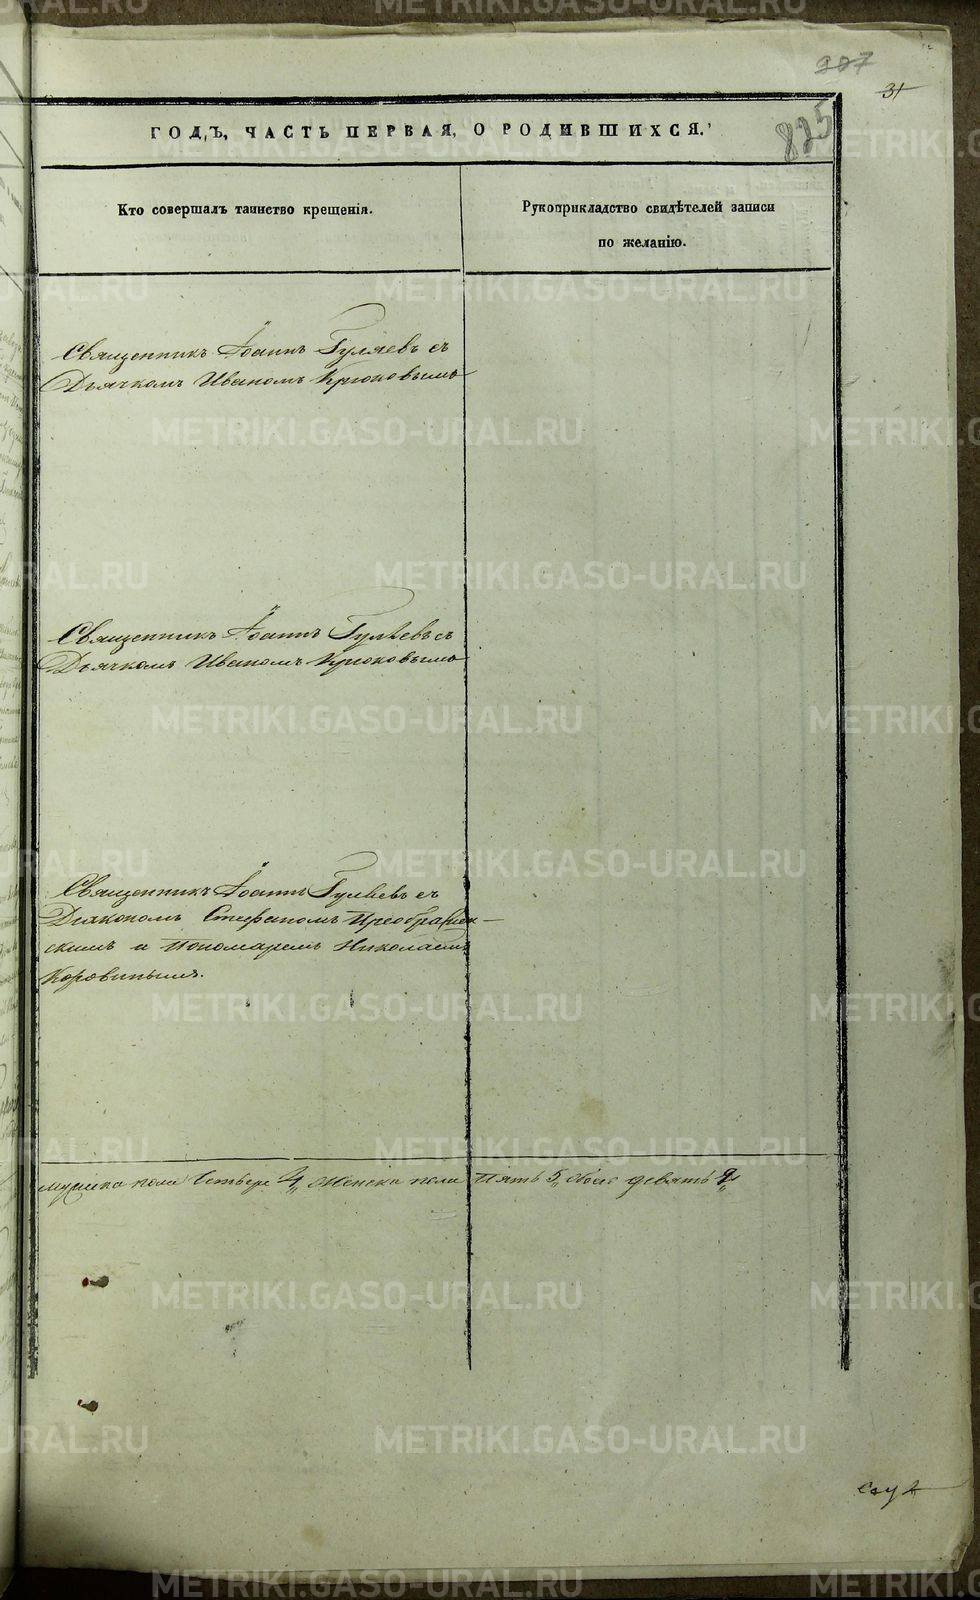 31
825
ГОДЪ, ЧАСТЬ ПЕРВАЯ, О РОДИВШИХСЯ.
Кто совершалъ таинство крещенія.
Рукоприкладство свидѣтелей записи
по желанію.
Священникъ Іоаннъ Гуляевъ съ
Дьячкомъ Иваномъ Крюковымъ
Священникъ Іоаннъ Гуляевъ съ
Дьячкомъ Иваномъ Крюковымъ
Священникъ Іоаннъ Гуляевъ съ
Діакономъ Стефаномъ Преображен-
скимъ и Пономаремъ Николаемъ
Коровинымъ.
мужска пола Четыре 4, Женска пола Пять 5, обоего девять 9,
METRIKI.GASO-URAL.RU